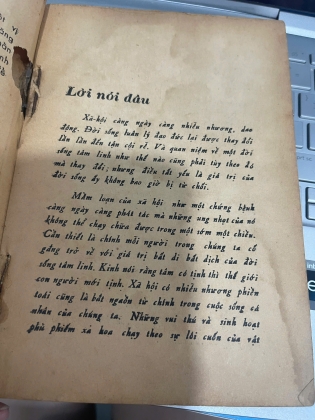 Lời nói đầu
Xã-hội càng ngày càng nhiều nhương, dao
động. Đời sống luân lý đạo đức lại được thay đổi
lần đến tận cội rễ. Và quan niệm về một đời
sống tâm linh như thế nào cũng phải tùy theo đó
mà thay đổi; nhưng điều tất yếu là giá trị của
đời sống ấy không bao giờ bị từ chối.
Mầm loạn của xã hội như một chứng bệnh
càng ngày càng phát tác mà những ung nhọt của nó
không thể chạy chữa được trong một sớm một chiều.
Cần thiết là chính mỗi người trong chúng ta cố
gắng trở về với giá trị bất di bất dịch của đời
sống tâm linh. Kinh nói rằng tâm có tịnh thì thế giới
con người mới tịnh. Xã hội có nhiều nhương phiền
toái cũng là bắt nguồn từ chính trong cuộc sống cá
nhân của chúng ta. Những vui thú và sinh hoạt
phù phiếm xa hoa chạy theo sự lôi cuốn của vật